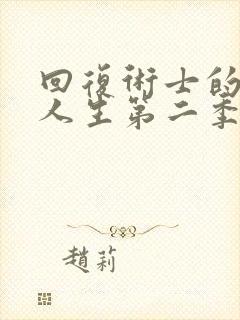 回復術士的
人生第二季
趙莉